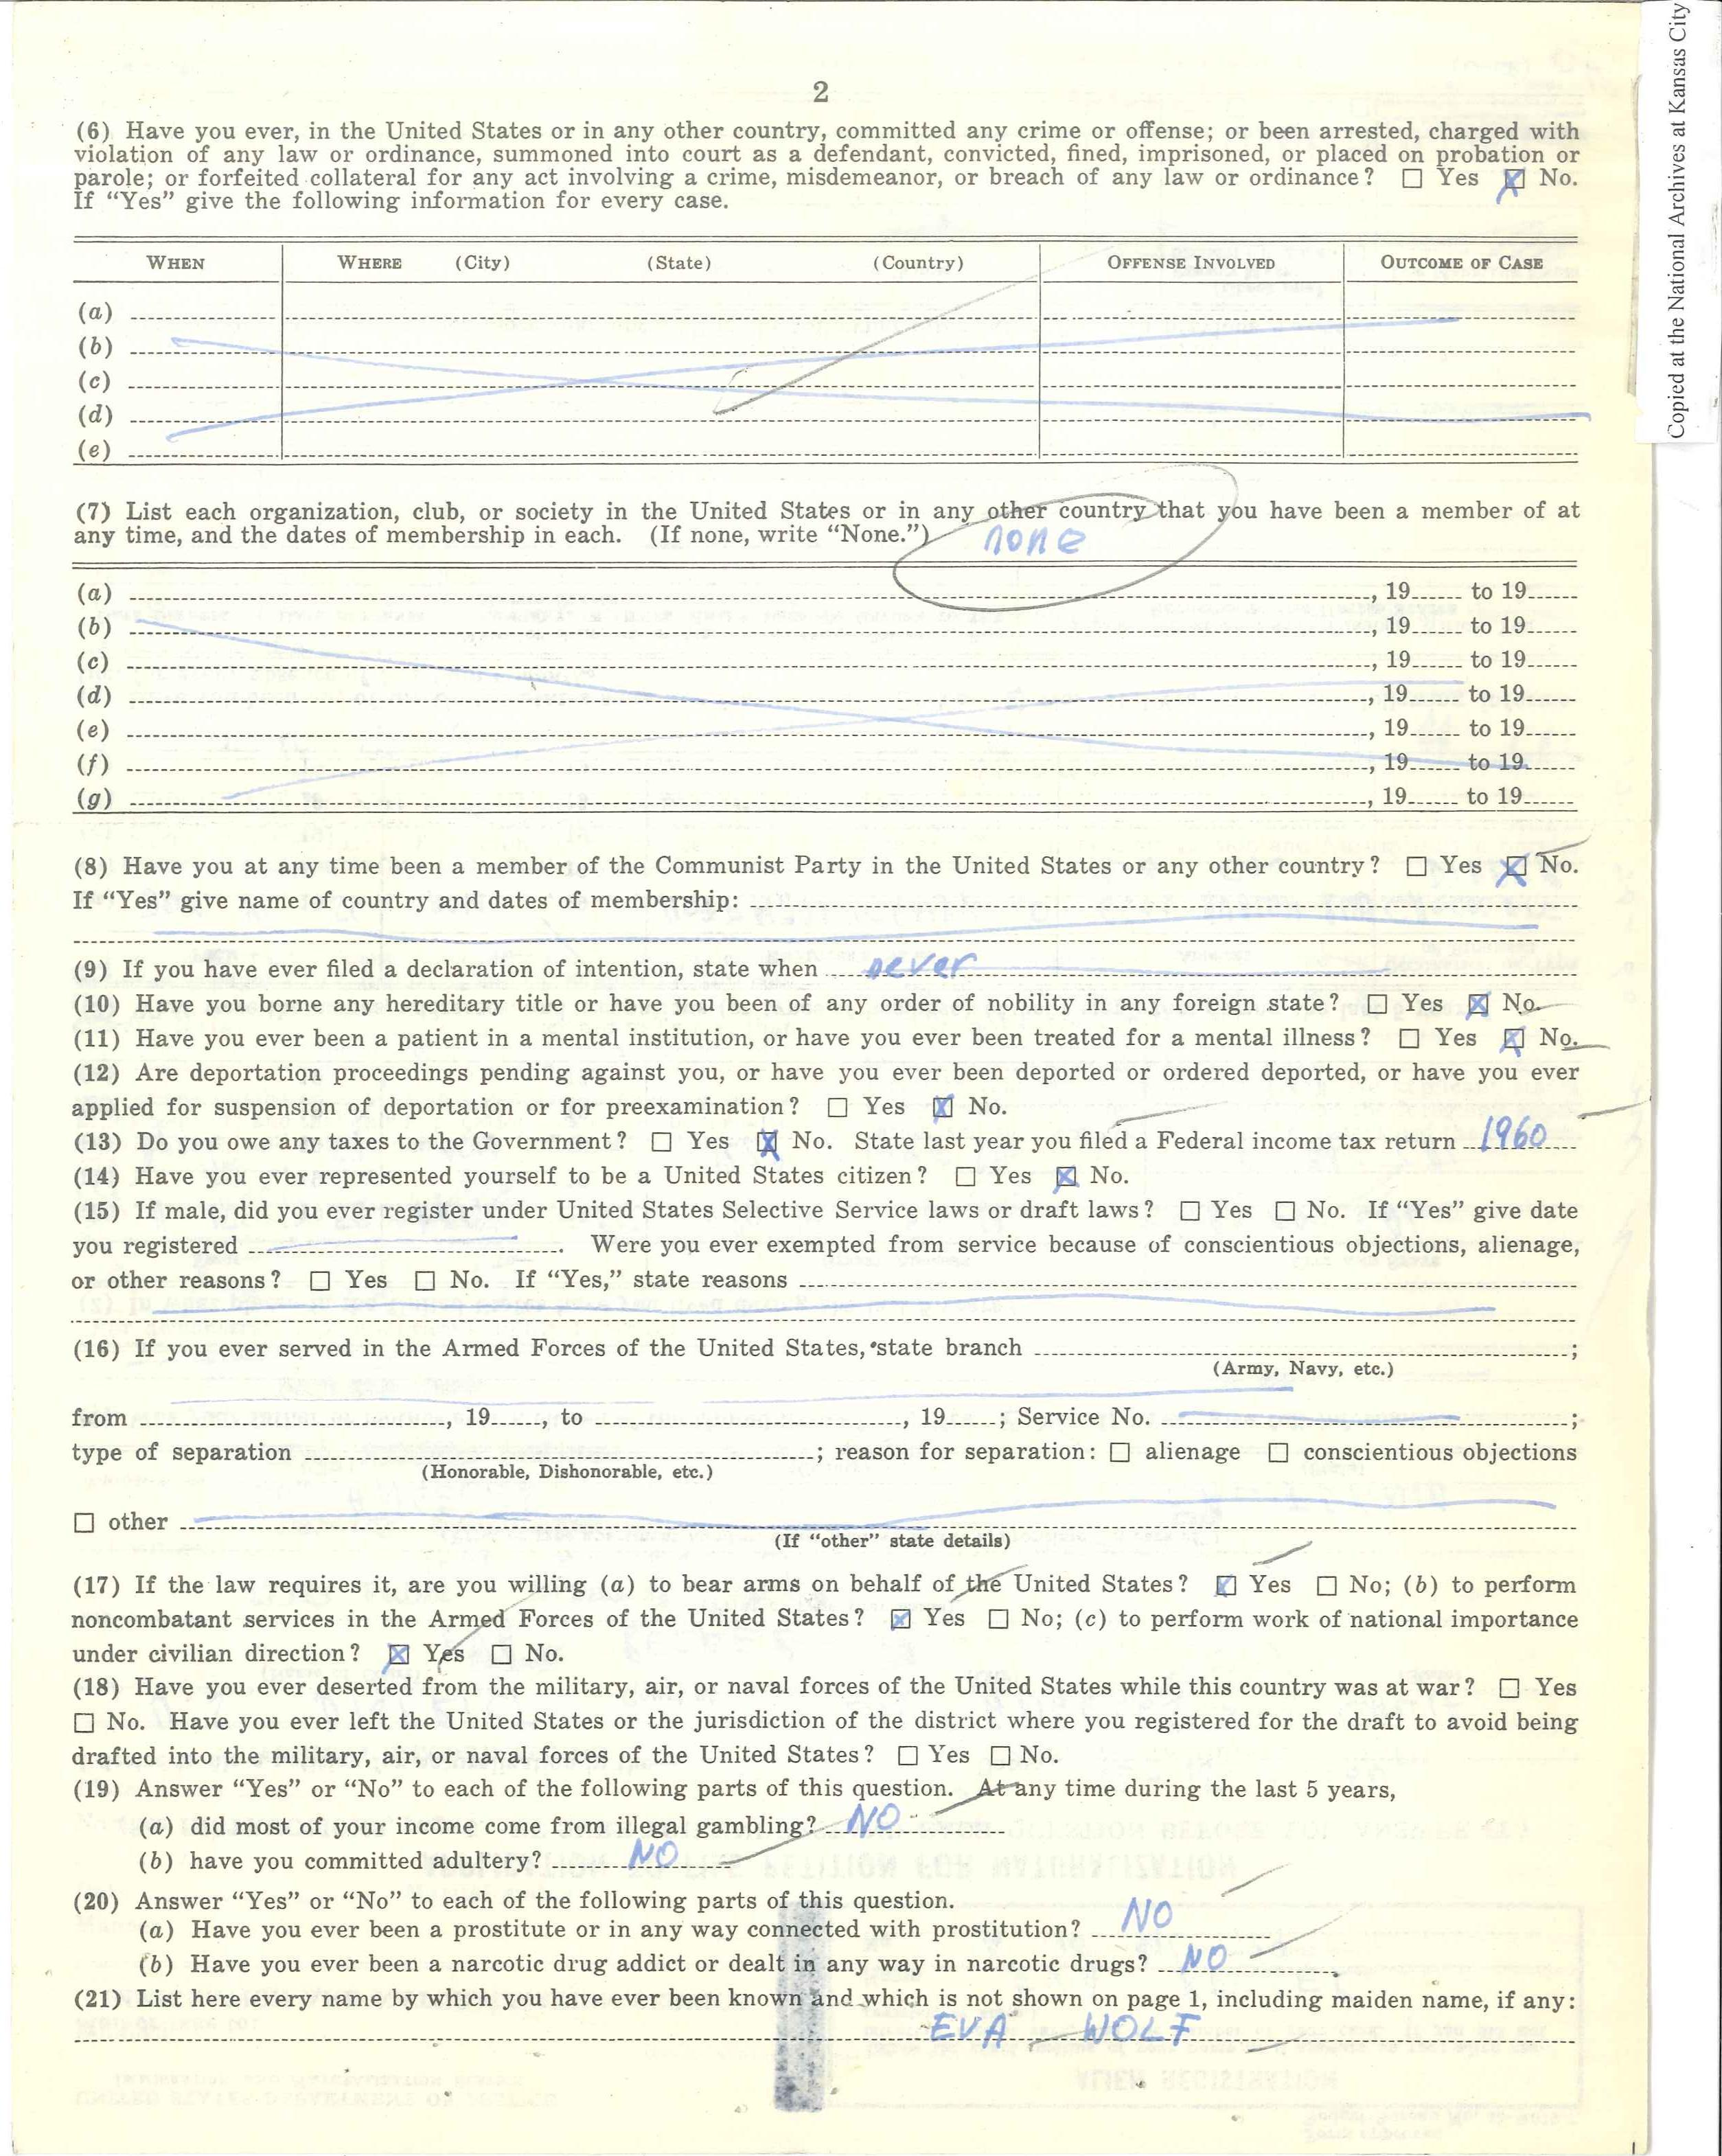 Copied at the National Archives at Kansas City
2
(6) Have you ever, in the United States or in any other country, committed any crime or offense; or been arrested, charged with
violation of any law or ordinance, summoned into court as a defendant, convicted, fined, imprisoned, or placed on probation or
parole; or forfeited collateral for any act involving a crime, misdemeanor, or breach of any law or ordinance? ☐ Yes ☒ No.
If “Yes” give the following information for every case.
WHEN WHERE (City) (State) (Country) OFFENSE INVOLVED OUTCOME OF CASE
(a)
(b)
(c)
(d)
(e)
(7) List each organization, club, or society in the United States or in any other country that you have been a member of at
any time, and the dates of membership in each. (If none, write “None.”) none
(a) , 19 to 19
(b) , 19 to 19
(c) , 19 to 19
(d) , 19 to 19
(e) , 19 to 19
(f) , 19 to 19
(g) , 19 to 19
(8) Have you at any time been a member of the Communist Party in the United States or any other country? ☐ Yes ☒ No.
If “Yes” give name of country and dates of membership:
(9) If you have ever filed a declaration of intention, state when never
(10) Have you borne any hereditary title or have you been of any order of nobility in any foreign state? ☐ Yes ☒ No.
(11) Have you ever been a patient in a mental institution, or have you ever been treated for a mental illness? ☐ Yes ☒ No.
(12) Are deportation proceedings pending against you, or have you ever been deported or ordered deported, or have you ever
applied for suspension of deportation or for preexamination? ☐ Yes ☒ No.
(13) Do you owe any taxes to the Government? ☐ Yes ☒ No. State last year you filed a Federal income tax return 1960
(14) Have you ever represented yourself to be a United States citizen? ☐ Yes ☒ No.
(15) If male, did you ever register under United States Selective Service laws or draft laws? ☐ Yes ☐ No. If “Yes” give date
you registered . Were you ever exempted from service because of conscientious objections, alienage,
or other reasons? ☐ Yes ☐ No. If “Yes,” state reasons
(16) If you ever served in the Armed Forces of the United States, state branch ;
(Army, Navy, etc.)
from , 19 , to , 19 ; Service No. ;
type of separation ; reason for separation: ☐ alienage ☐ conscientious objections
(Honorable, Dishonorable, etc.)
☐ other
(If “other” state details)
(17) If the law requires it, are you willing (a) to bear arms on behalf of the United States? ☒ Yes ☐ No; (b) to perform
noncombatant services in the Armed Forces of the United States? ☒ Yes ☐ No; (c) to perform work of national importance
under civilian direction? ☒ Yes ☐ No.
(18) Have you ever deserted from the military, air, or naval forces of the United States while this country was at war? ☐ Yes
☐ No. Have you ever left the United States or the jurisdiction of the district where you registered for the draft to avoid being
drafted into the military, air, or naval forces of the United States? ☐ Yes ☐ No.
(19) Answer “Yes” or “No” to each of the following parts of this question. At any time during the last 5 years,
(a) did most of your income come from illegal gambling? NO
(b) have you committed adultery? NO
(20) Answer “Yes” or “No” to each of the following parts of this question.
(a) Have you ever been a prostitute or in any way connected with prostitution? NO
(b) Have you ever been a narcotic drug addict or dealt in any way in narcotic drugs? NO
(21) List here every name by which you have ever been known and which is not shown on page 1, including maiden name, if any:
EVA WOLF